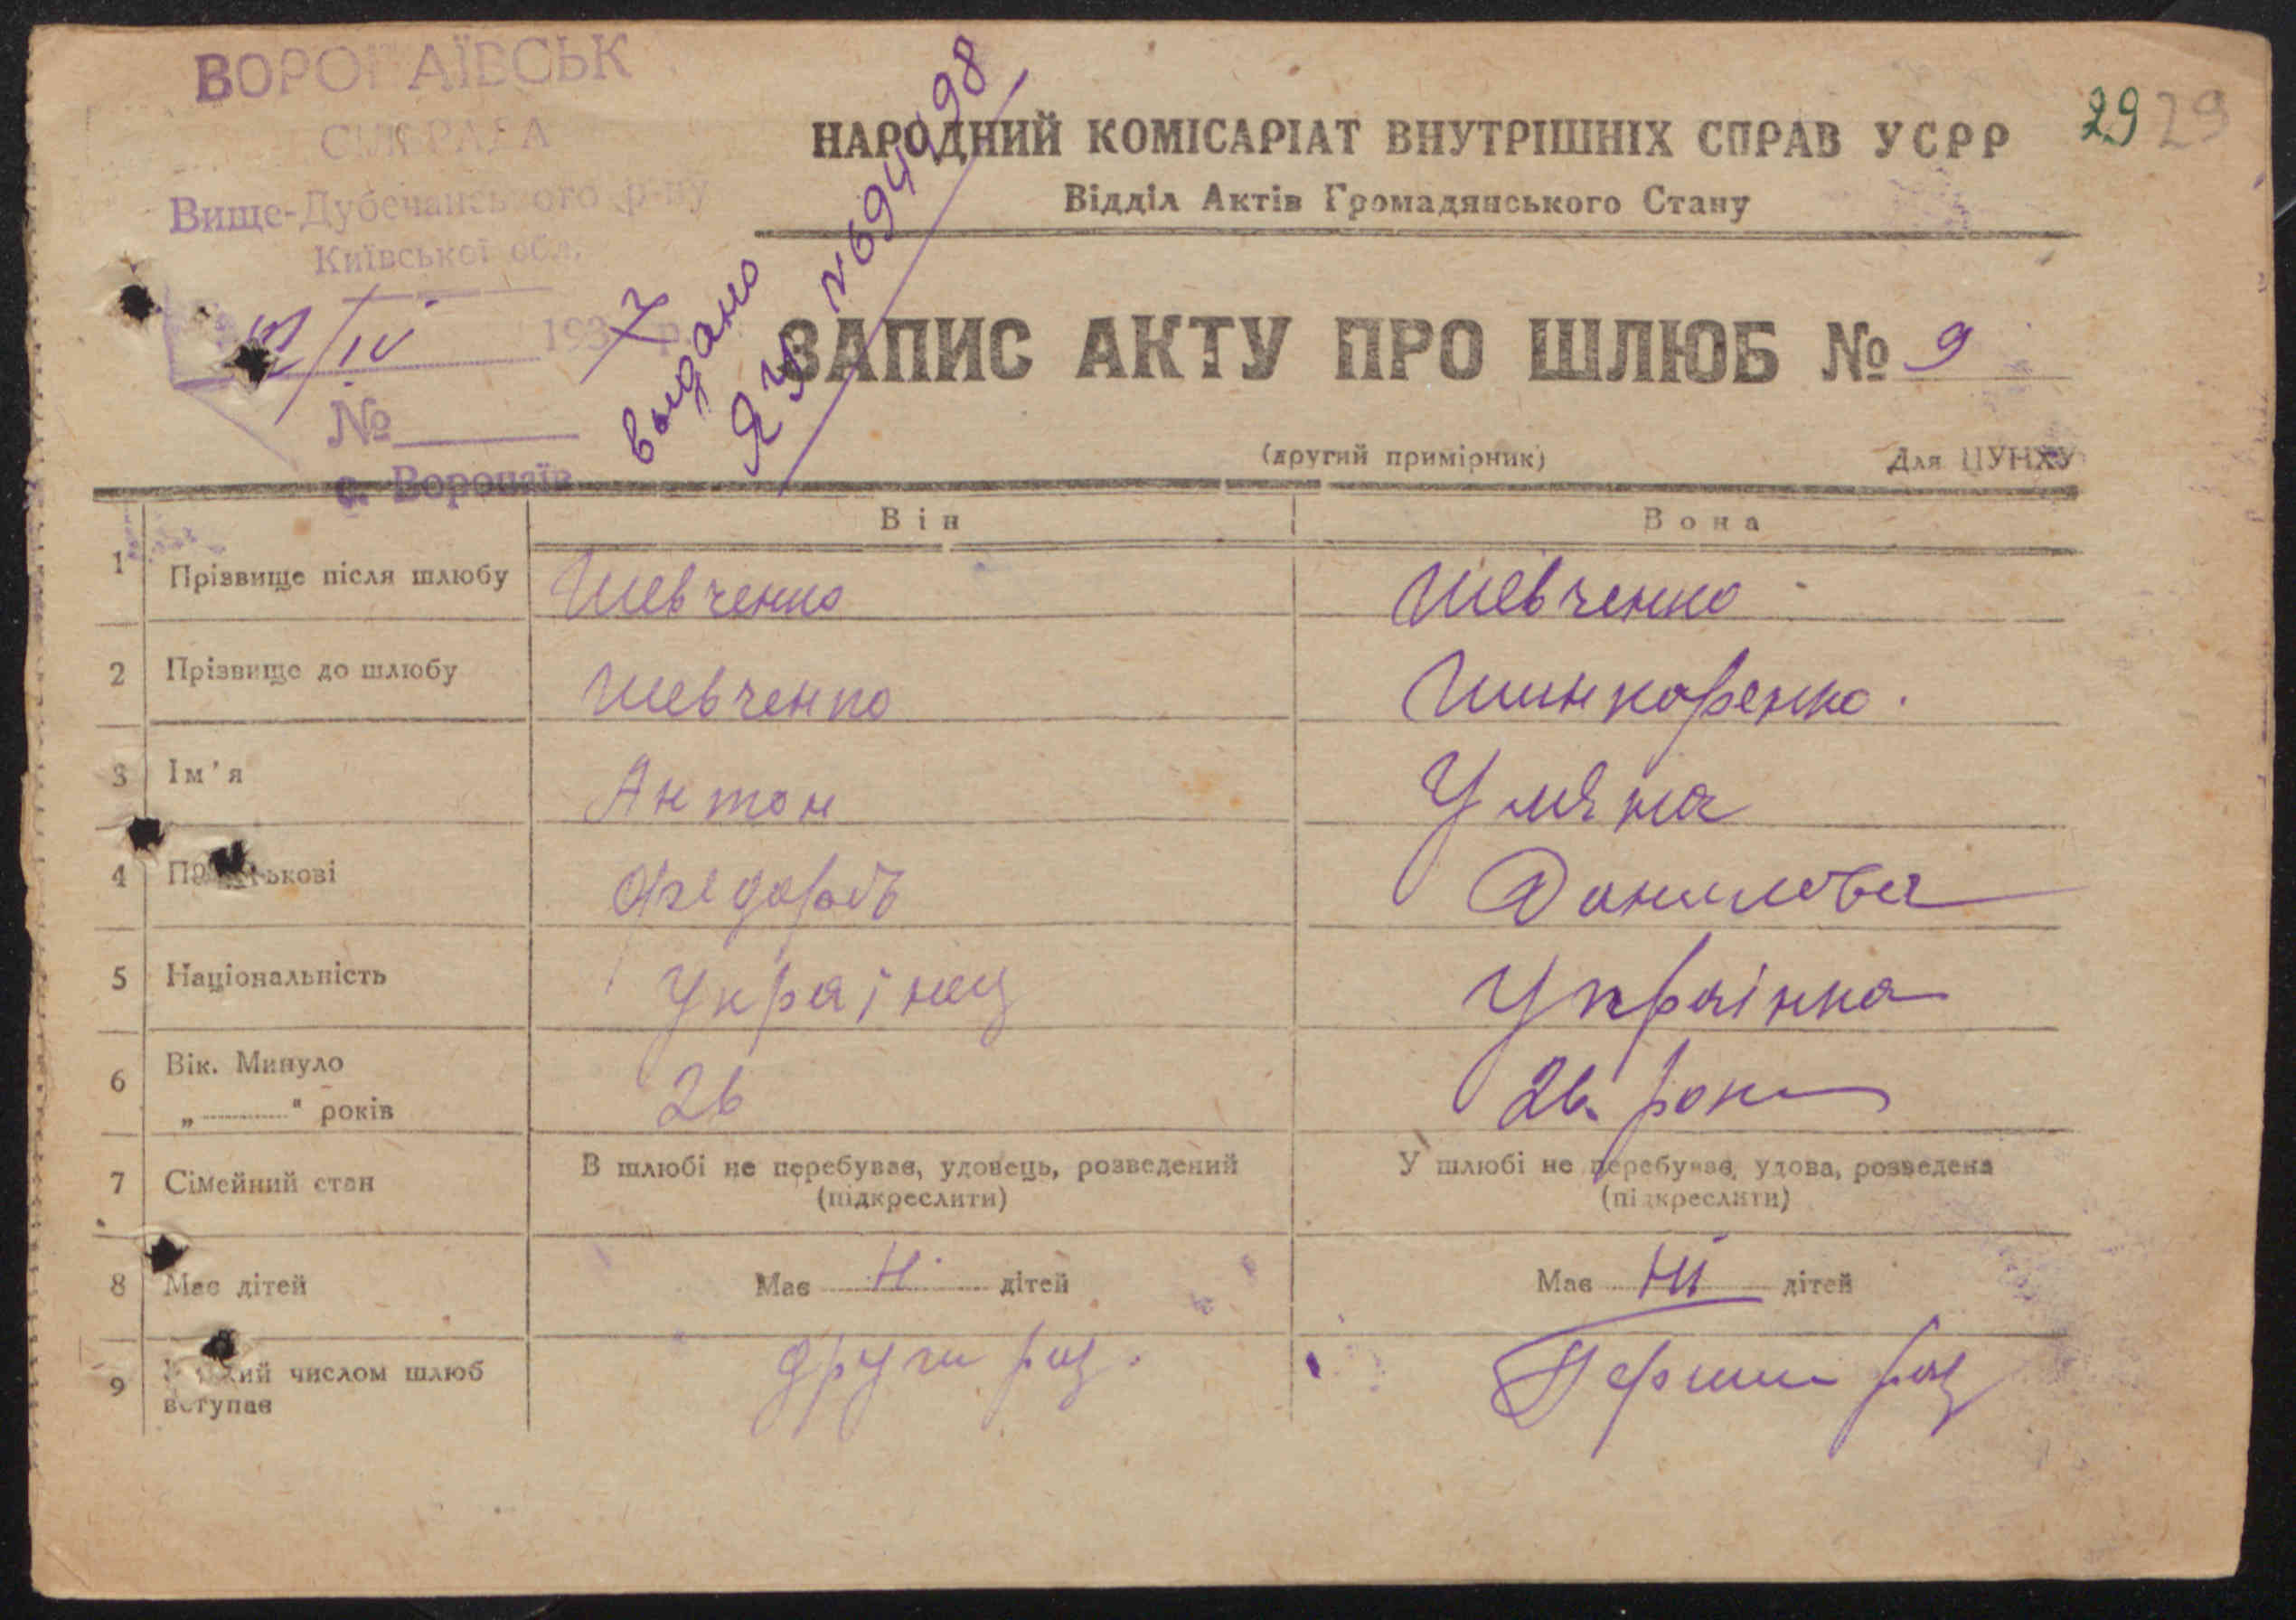 ВОРОПАЇВСЬК
СІЛЬРАДА
Вище-Дубечанського р-ну
Київської обл.
/IV 1937 р.
№
с. Воропаїв
выдано
ЯЧ №694498
29 29
НАРОДНИЙ КОМІСАРІАТ ВНУТРІШНІХ СПРАВ УСРР
Відділ Актів Громадянського Стану
ЗАПИС АКТУ ПРО ШЛЮБ № 9
(другий примірник) Для ЦУНХУ
Він Вона
1 Прізвище після шлюбу Шевченко Шевченко
2 Прізвище до шлюбу Шевченко Шинкаренко.
3 Ім'я Антон Уляна
4 По батькові Федоров Данилова
5 Національність Українец Українка
6 Вік. Минуло
„ " років 26 26 роки
7 Сімейний стан В шлюбі не перебував, удовець, розведений У шлюбі не перебував, удова, розведена
(підкреслити) (підкреслити)
8 Має дітей Має Ні дітей Має Ні дітей
9 кий числом шлюб
вступає други раз. Перши раз